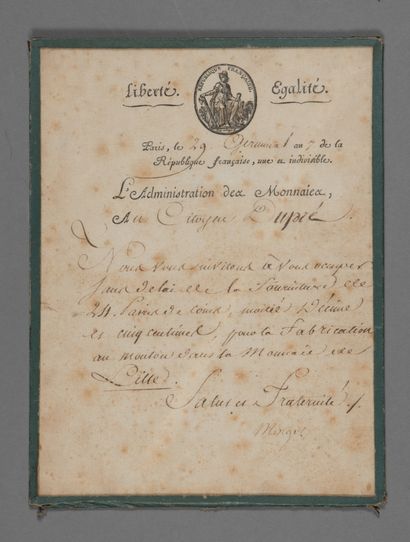 Liberté. Egalité.
RÉPUBLIQUE FRANÇAISE
Paris, le 29 Germinal an 7 de la
République française, une et indivisible.
L'Administration des Monnaies,
Au Citoyen Dupré
Nous vous invitons à vous occuper
sans delai de la fourniture de
24 Paires de coins, moitié Décime
et cinq centimes, pour la Fabrication
au mouton dans la Monnaie de
Lille.
Salut et Fraternité